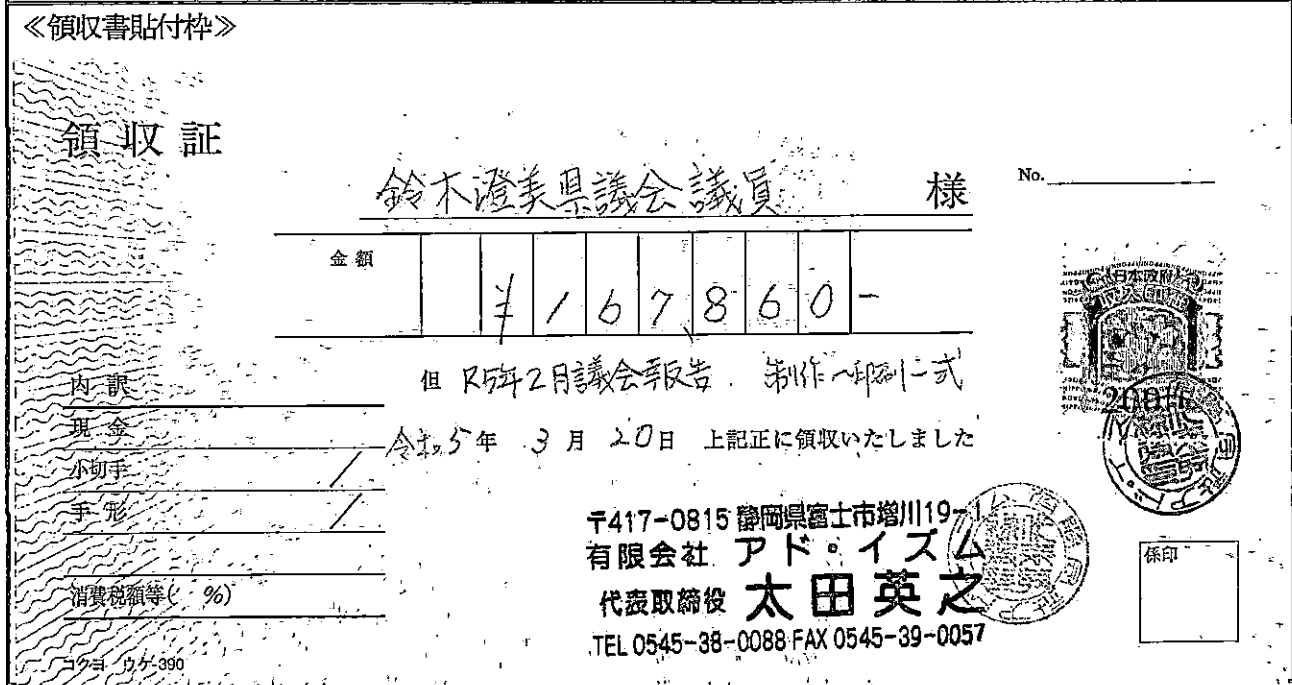 ≪領収書貼付枠≫
領収証
鈴木澄美県議会議員 様
No.
金額 ¥167,860-
但 R5年2月議会報告 制作〜印刷一式
令和5年 3月 20日 上記正に領収いたしました
内訳
現金
小切手
手形
消費税額等( %)
コクヨ ウケ-390
〒417-0815 静岡県富士市増川19-1
有限会社 アド・イズム
代表取締役 太田英之
TEL 0545-38-0088 FAX 0545-39-0057
日本政府
収入印紙
200円
係印